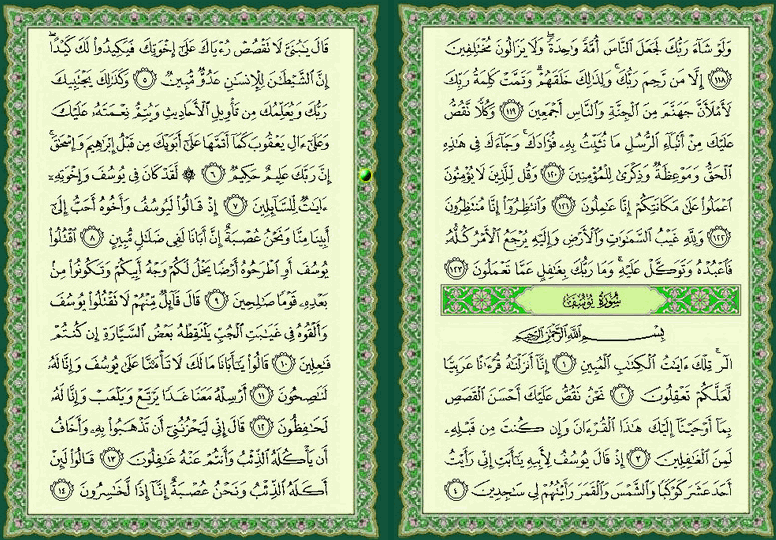 وَلَوْ شَآءَ رَبُّكَ لَجَعَلَ ٱلنَّاسَ أُمَّةً وَٰحِدَةً ۖ وَلَا يَزَالُونَ مُخْتَلِفِينَ
﴿١١٨﴾ إِلَّا مَن رَّحِمَ رَبُّكَ ۚ وَلِذَٰلِكَ خَلَقَهُمْ ۗ وَتَمَّتْ كَلِمَةُ رَبِّكَ
لَأَمْلَأَنَّ جَهَنَّمَ مِنَ ٱلْجِنَّةِ وَٱلنَّاسِ أَجْمَعِينَ ﴿١١٩﴾ وَكُلًّا نَّقُصُّ
عَلَيْكَ مِنْ أَنۢبَآءِ ٱلرُّسُلِ مَا نُثَبِّتُ بِهِۦ فُؤَادَكَ ۚ وَجَآءَكَ فِى هَٰذِهِ
ٱلْحَقُّ وَمَوْعِظَةٌ وَذِكْرَىٰ لِلْمُؤْمِنِينَ ﴿١٢٠﴾ وَقُل لِّلَّذِينَ لَا يُؤْمِنُونَ
ٱعْمَلُوا۟ عَلَىٰ مَكَانَتِكُمْ إِنَّا عَٰمِلُونَ ﴿١٢١﴾ وَٱنتَظِرُوٓا۟ إِنَّا مُنتَظِرُونَ
﴿١٢٢﴾ وَلِلَّهِ غَيْبُ ٱلسَّمَٰوَٰتِ وَٱلْأَرْضِ وَإِلَيْهِ يُرْجَعُ ٱلْأَمْرُ كُلُّهُۥ
فَٱعْبُدْهُ وَتَوَكَّلْ عَلَيْهِ ۚ وَمَا رَبُّكَ بِغَٰفِلٍ عَمَّا تَعْمَلُونَ ﴿١٢٣﴾
سُورَةُ يُوسُفَ
بِسْمِ ٱللَّهِ ٱلرَّحْمَٰنِ ٱلرَّحِيمِ
الٓر ۚ تِلْكَ ءَايَٰتُ ٱلْكِتَٰبِ ٱلْمُبِينِ ﴿١﴾ إِنَّآ أَنزَلْنَٰهُ قُرْءَٰنًا عَرَبِيًّا
لَّعَلَّكُمْ تَعْقِلُونَ ﴿٢﴾ نَحْنُ نَقُصُّ عَلَيْكَ أَحْسَنَ ٱلْقَصَصِ
بِمَآ أَوْحَيْنَآ إِلَيْكَ هَٰذَا ٱلْقُرْءَانَ وَإِن كُنتَ مِن قَبْلِهِۦ
لَمِنَ ٱلْغَٰفِلِينَ ﴿٣﴾ إِذْ قَالَ يُوسُفُ لِأَبِيهِ يَٰٓأَبَتِ إِنِّى رَأَيْتُ
أَحَدَ عَشَرَ كَوْكَبًا وَٱلشَّمْسَ وَٱلْقَمَرَ رَأَيْتُهُمْ لِى سَٰجِدِينَ ﴿٤﴾
قَالَ يَٰبُنَىَّ لَا تَقْصُصْ رُءْيَاكَ عَلَىٰٓ إِخْوَتِكَ فَيَكِيدُوا۟ لَكَ كَيْدًا ۖ
إِنَّ ٱلشَّيْطَٰنَ لِلْإِنسَٰنِ عَدُوٌّ مُّبِينٌ ﴿٥﴾ وَكَذَٰلِكَ يَجْتَبِيكَ
رَبُّكَ وَيُعَلِّمُكَ مِن تَأْوِيلِ ٱلْأَحَادِيثِ وَيُتِمُّ نِعْمَتَهُۥ عَلَيْكَ
وَعَلَىٰٓ ءَالِ يَعْقُوبَ كَمَآ أَتَمَّهَا عَلَىٰٓ أَبَوَيْكَ مِن قَبْلُ إِبْرَٰهِيمَ وَإِسْحَٰقَ ۚ
إِنَّ رَبَّكَ عَلِيمٌ حَكِيمٌ ﴿٦﴾ ۞ لَّقَدْ كَانَ فِى يُوسُفَ وَإِخْوَتِهِۦٓ
ءَايَٰتٌ لِّلسَّآئِلِينَ ﴿٧﴾ إِذْ قَالُوا۟ لَيُوسُفُ وَأَخُوهُ أَحَبُّ إِلَىٰٓ
أَبِينَا مِنَّا وَنَحْنُ عُصْبَةٌ إِنَّ أَبَانَا لَفِى ضَلَٰلٍ مُّبِينٍ ﴿٨﴾ ٱقْتُلُوا۟
يُوسُفَ أَوِ ٱطْرَحُوهُ أَرْضًا يَخْلُ لَكُمْ وَجْهُ أَبِيكُمْ وَتَكُونُوا۟ مِنۢ
بَعْدِهِۦ قَوْمًا صَٰلِحِينَ ﴿٩﴾ قَالَ قَآئِلٌ مِّنْهُمْ لَا تَقْتُلُوا۟ يُوسُفَ
وَأَلْقُوهُ فِى غَيَٰبَتِ ٱلْجُبِّ يَلْتَقِطْهُ بَعْضُ ٱلسَّيَّارَةِ إِن كُنتُمْ
فَٰعِلِينَ ﴿١٠﴾ قَالُوا۟ يَٰٓأَبَانَا مَا لَكَ لَا تَأْمَ۫نَّا عَلَىٰ يُوسُفَ وَإِنَّا لَهُۥ
لَنَٰصِحُونَ ﴿١١﴾ أَرْسِلْهُ مَعَنَا غَدًا يَرْتَعْ وَيَلْعَبْ وَإِنَّا لَهُۥ
لَحَٰفِظُونَ ﴿١٢﴾ قَالَ إِنِّى لَيَحْزُنُنِىٓ أَن تَذْهَبُوا۟ بِهِۦ وَأَخَافُ
أَن يَأْكُلَهُ ٱلذِّئْبُ وَأَنتُمْ عَنْهُ غَٰفِلُونَ ﴿١٣﴾ قَالُوا۟ لَئِنْ
أَكَلَهُ ٱلذِّئْبُ وَنَحْنُ عُصْبَةٌ إِنَّآ إِذًا لَّخَٰسِرُونَ ﴿١٤﴾